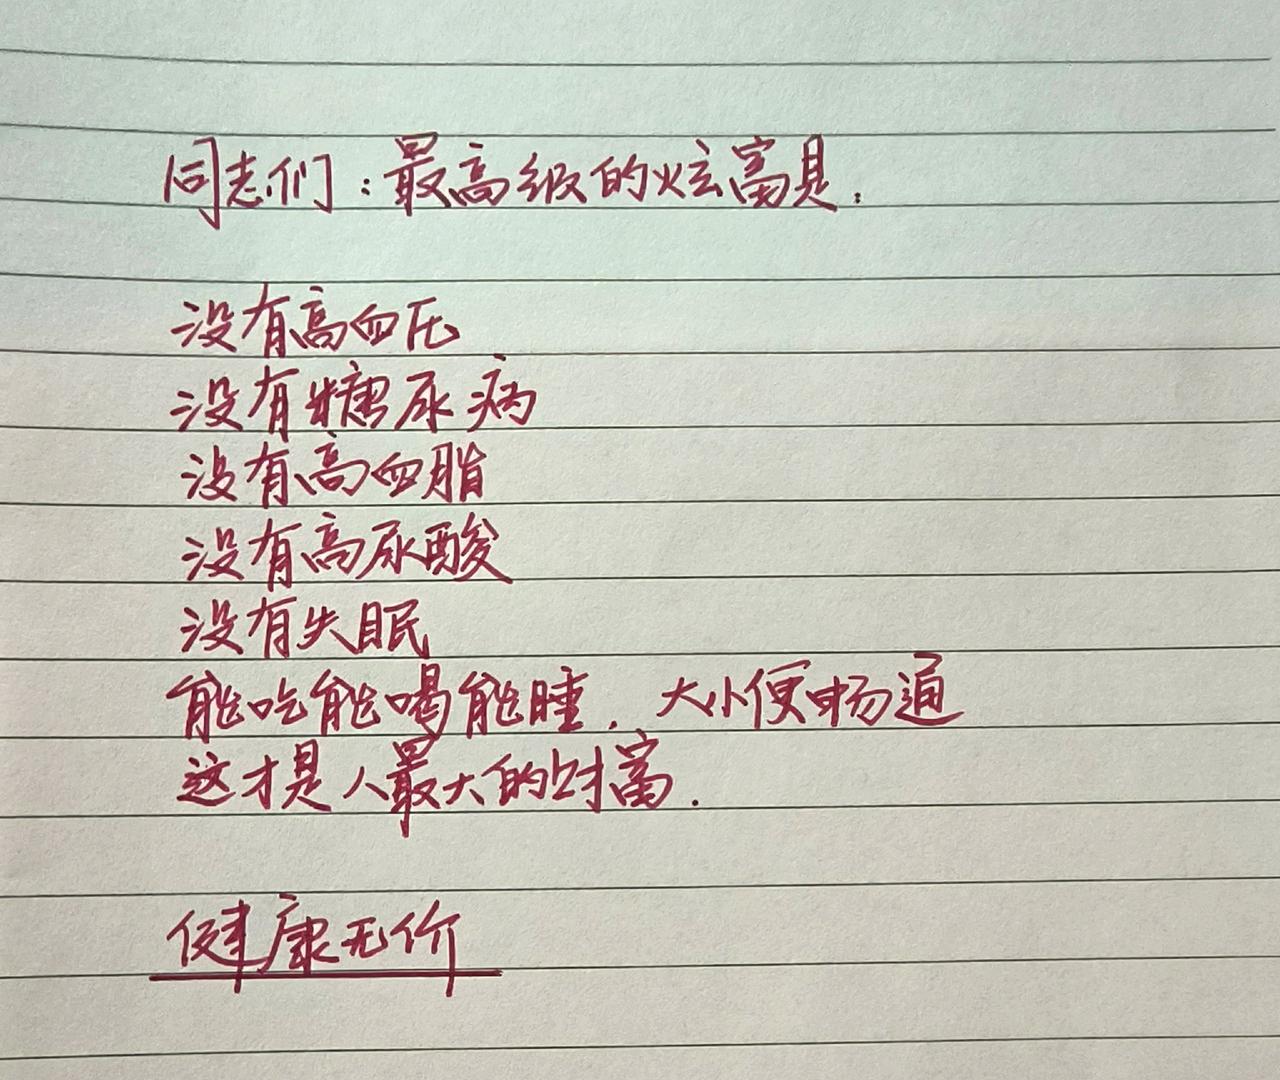 同志们：最高级的炫富是：
没有高血压
没有糖尿病
没有高血脂
没有高尿酸
没有失眠
能吃能喝能睡．大小便畅通
这才是人最大的财富．
健康无价